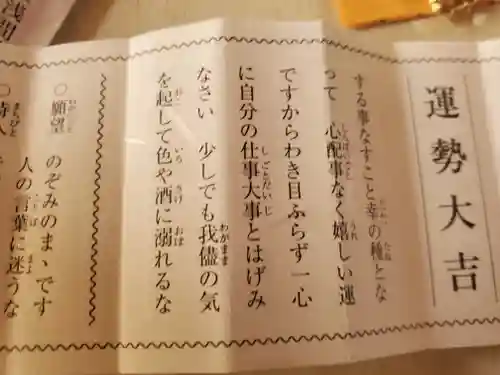 運勢大吉
する事なすこと幸の種とな
って　心配事なく嬉しい運
ですからわき目ふらず一心
に自分の仕事大事とはげみ
なさい　少しでも我儘の気
を起して色や酒に溺れるな
○願望　のぞみのまゝです
人の言葉に迷うな
○待人
浅田